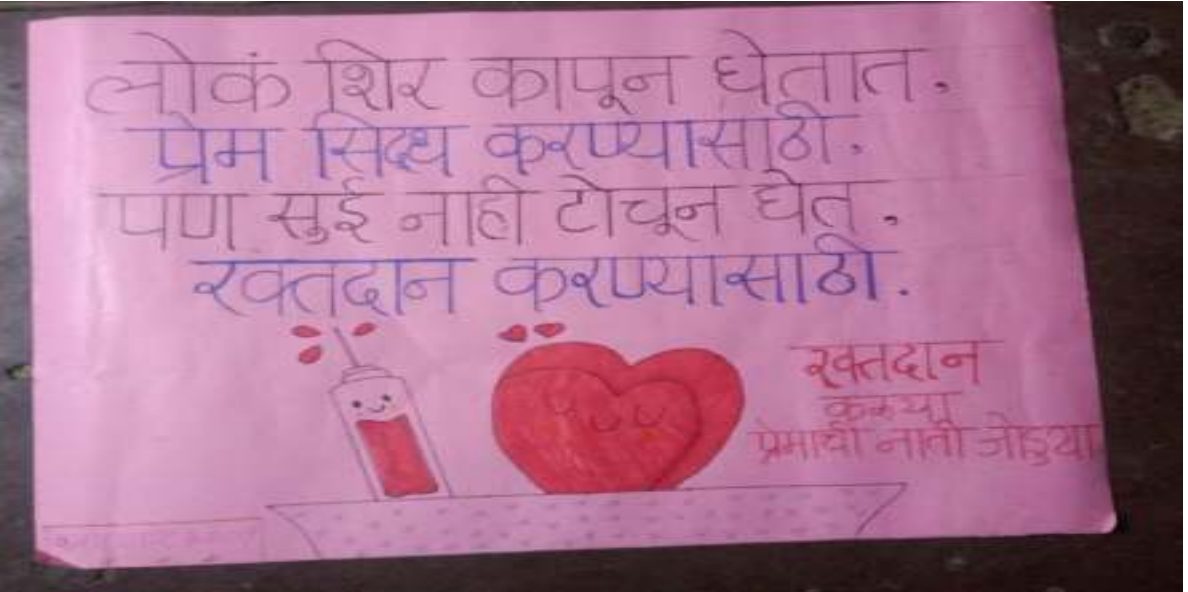 लोकं शिर कापून घेतात.
प्रेम सिध्द करण्यासाठी.
पण सुई नाही टोचून घेत.
रक्तदान करण्यासाठी.
रक्तदान
करूया
प्रेमाची नाती जोडुया